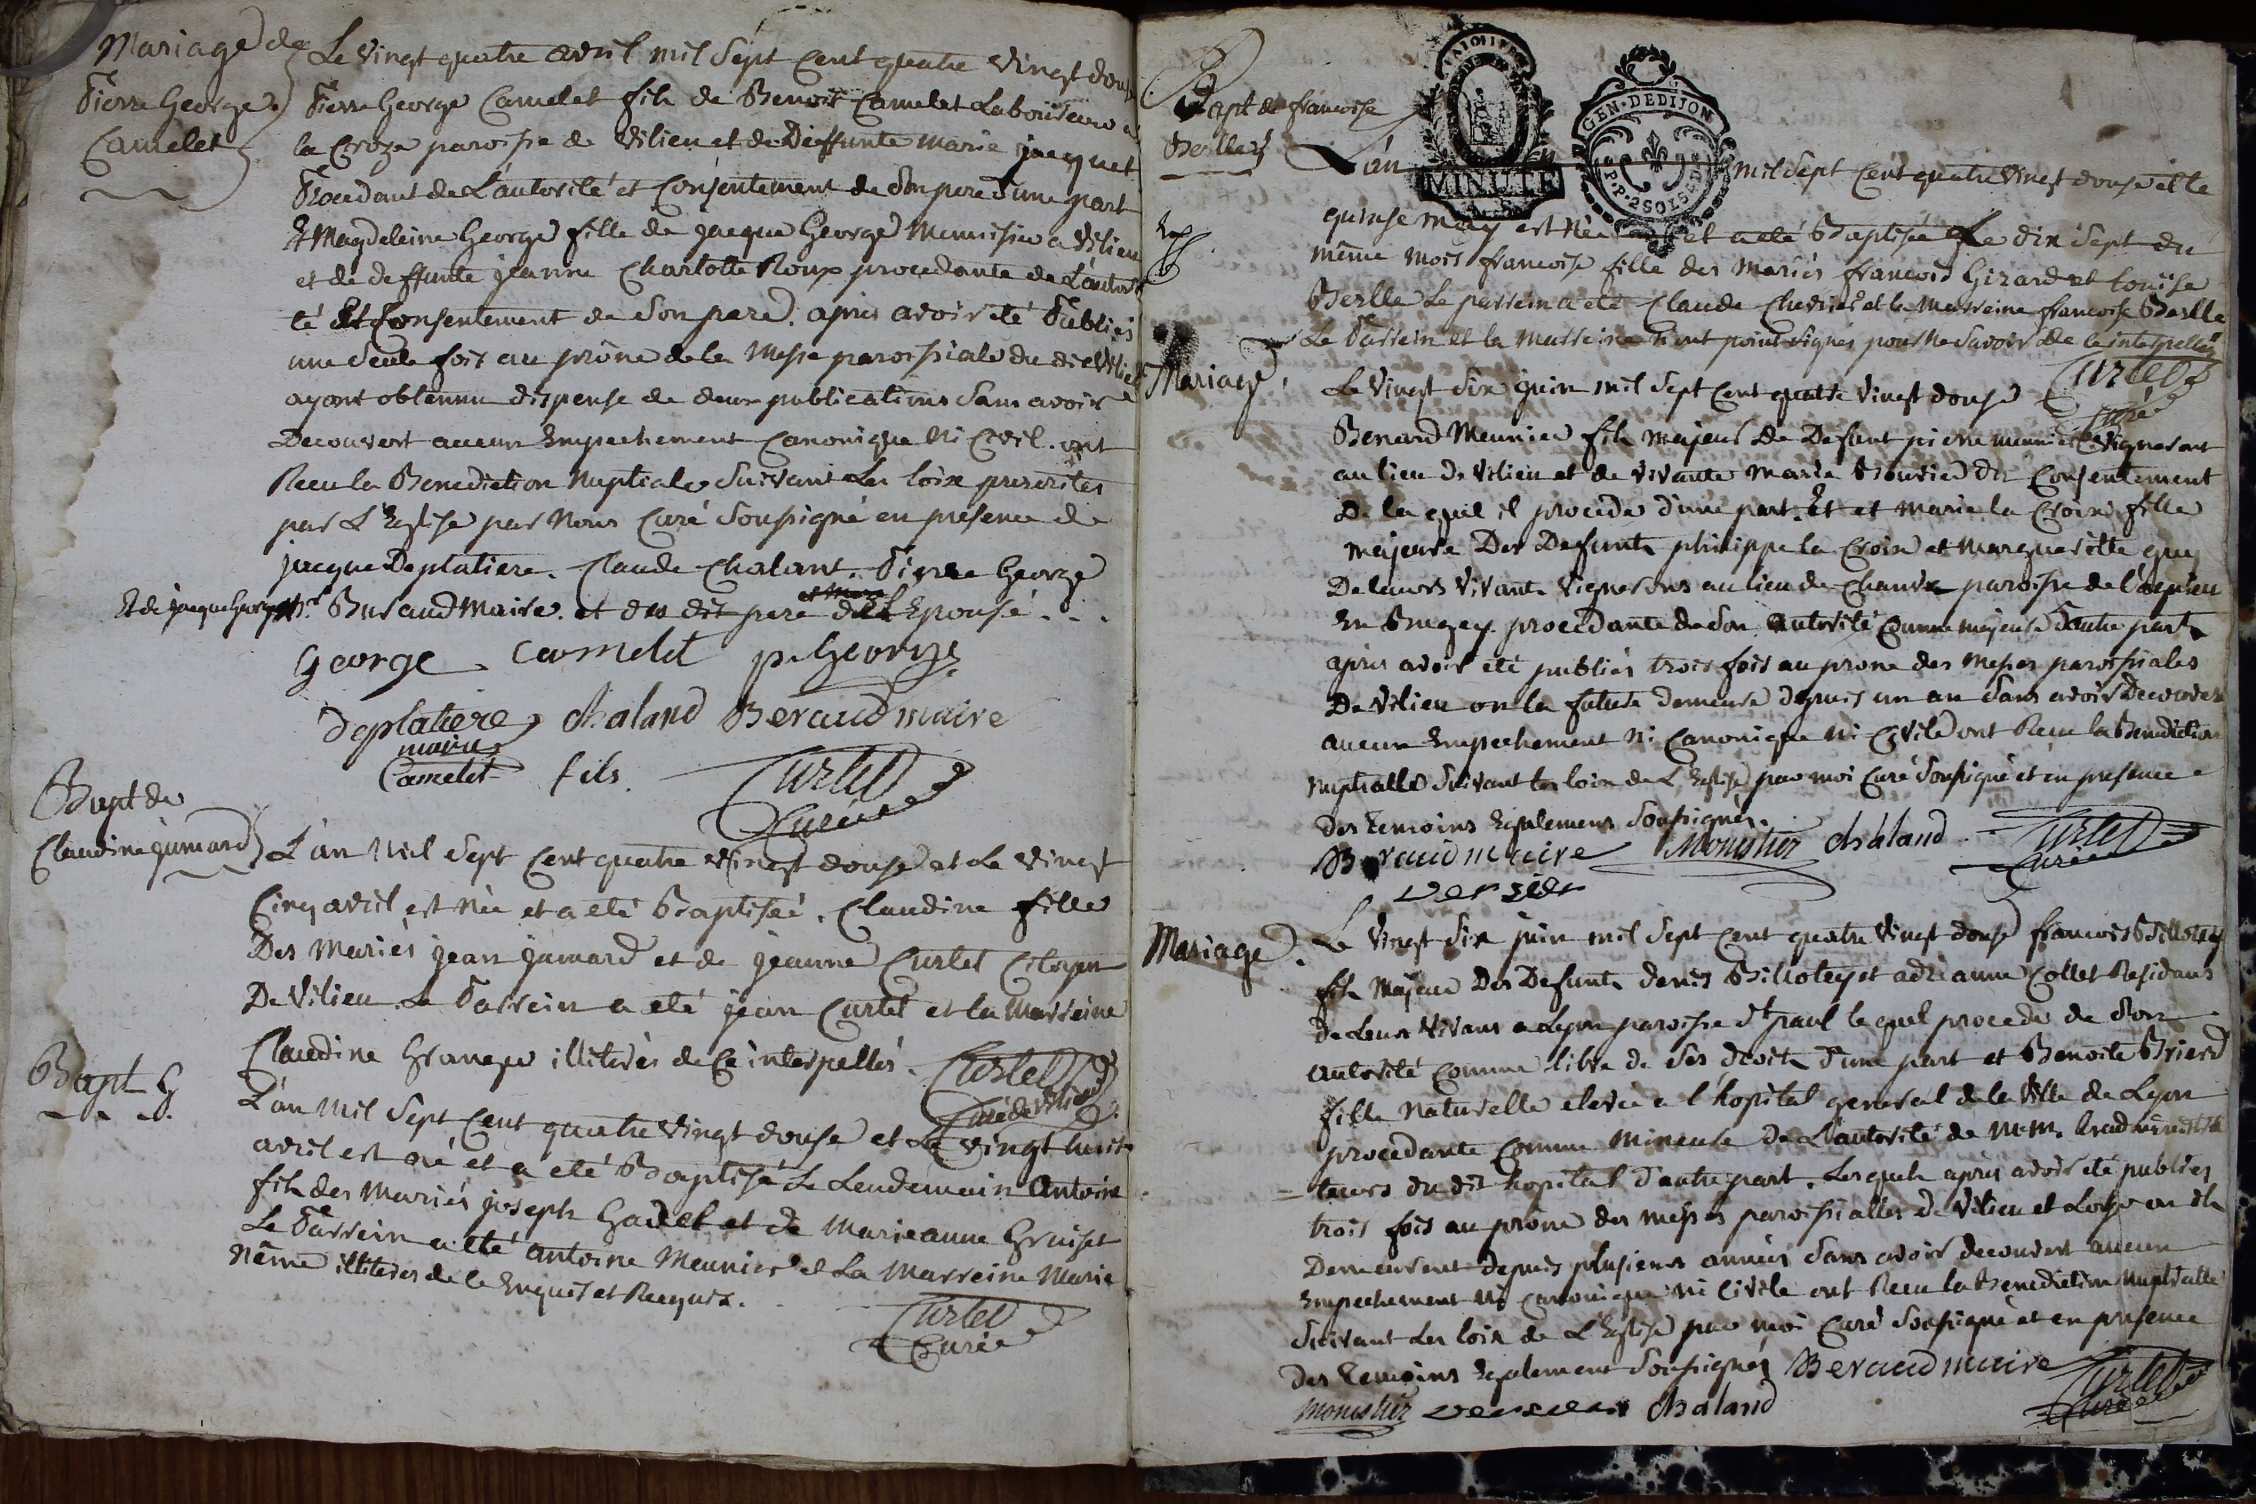 Mariage de
Pierre George
Camelet
Le vingt quatre avril mil sept cent quatre vingt douse
Pierre George Camelet fils de Benoit Camelet Laboureur a
la Croze paroisse de vilieu et de Deffunte marie jacquet
Procedant de L'autorité et Consentement de Son pere d'une part
Et Magdeleine George fille de jacque George Menuisier a vilieu
et de deffunte jeanne Charlotte Roux procedante de L'autori
té Et Consentement de Son pere. apres avoir été Publiés
une seule fois au prône de la Messe paroissiale du dit vilieu
ayant obtenu dispense de deux publications Sans avoir
Decouvert aucun Empechement Canonique Ni Civil. ont
Recu la Benediction Nuptiale Suivant Les loix prescrites
par L'Eglise par Nous Curé Soussigné en presence de
jacque Deplatiere. Claude Chalant. Pierre George
Et de jacque George Sr. Buraud Maire. et du dit pere et mere de L'Epouse . . .
George Camelet p. George
Deplatiere chaland Beraud maire
maire
Camelet fils. Curlet
Curée
Bapt de
Claudine jumard
L'an Mil Sept Cent quatre vingt douse et Le vingt
Cinq avril est Née et a été Baptisée. Claudine fille
Des Mariés jean jumard et de jeanne Curlet Citoyen
De Vilieu. Le Parrein a été jean Curlet et la Marreine
Claudine Granger illiterés de Ce interpellés. Curlet
Curé de vilieu
Bapt
L'an Mil Sept Cent quatre vingt douse et Le vingt huit
avril est né et a été Baptisé Le Lendemain Antoine
fils des Mariés joseph Gadel et de Marie anne Gruiset
Le Parrein a été Antoine Meunier et La Marreine Marie
Même illiteres de le Enquis et Requis.
Curlet
Curée
Bapt de francoise
GEN. DE DIJON
MINUTE
L'an mil Sept Cent quatre vingt douse et le
quinse may est Née et a été Baptisée Le dix Sept du
même mois francoise fille des Mariés francois Girard et Louise
Berlle Le parrein a été Claude Chevrier et la Marreine francoise Berlle
Le Parrein et la Marreine N'ont point signés pour Ne Savoir de ce interpellés
Curlet
Curé
Mariage
Le Vingt Six juin mil Sept Cent quatre Vingt douse
Benard Meunier fils Majeur de Defunt pierre meunier Vigneront
au lieu de vilieu et de vivante Marie Bouvier du Consentement
De la quel il procede d'une part. Et et Marie la Croix fille
majeure Des Defunts philippe la Croix et Marguerite guy
De leurs Vivants Vignerons au lieu de Chanve paroisse de l'agnieu
En Bugey procedante de Son Autorité Comme Majeure D'autre part
apres avoir été publiés trois fois au prone des Messes paroissiales
De Vilieu ou la future demeure depuis un an Sans avoir Decouvert
aucun Empechement Ni Canonique Ni Civile ont Recu la Benediction
Nuptialle Suivant les loix de L'Eglise par moi Curé Soussigné et en presence
Des Temoins Egalement Soussignés.
Beraud maire Monistier chaland Curlet
Curée
versier
Mariage.
Le Vingt Six juin mil Sept Cent quatre Vingt douse francois Billotey
fils Majeur Des Defunts denis Billotey et adrianne Collet Residans
De Leur Vivans a Lyon paroisse St paul le quel procede de Son
autorité Comme libre de Ses droits d'une part et Benoite Briard
fille Naturelle elevée a l'hopital general de la Ville de Lyon
procedante Comme Mineure de L'autorité de M.M. les administra
- teurs du dit hopital d'autre part. Lesquels apres avoir été publiés
trois fois au prône des Messes paroissialles de Vilieu et Loye ou ils
Demeurent depuis plusieurs années Sans avoir decouvert aucun
Empechement Ni Canonique Ni Civile ont Recu la Benediction Nuptialle
Suivant Les loix de L'Eglise par moi Curé Soussigné et en presence
Des Temoins Egalement Soussignés Beraud maire Curlet
Curée
Monistier versier chaland